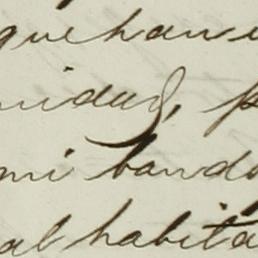 que han
nidad, p
mi bando
al habita